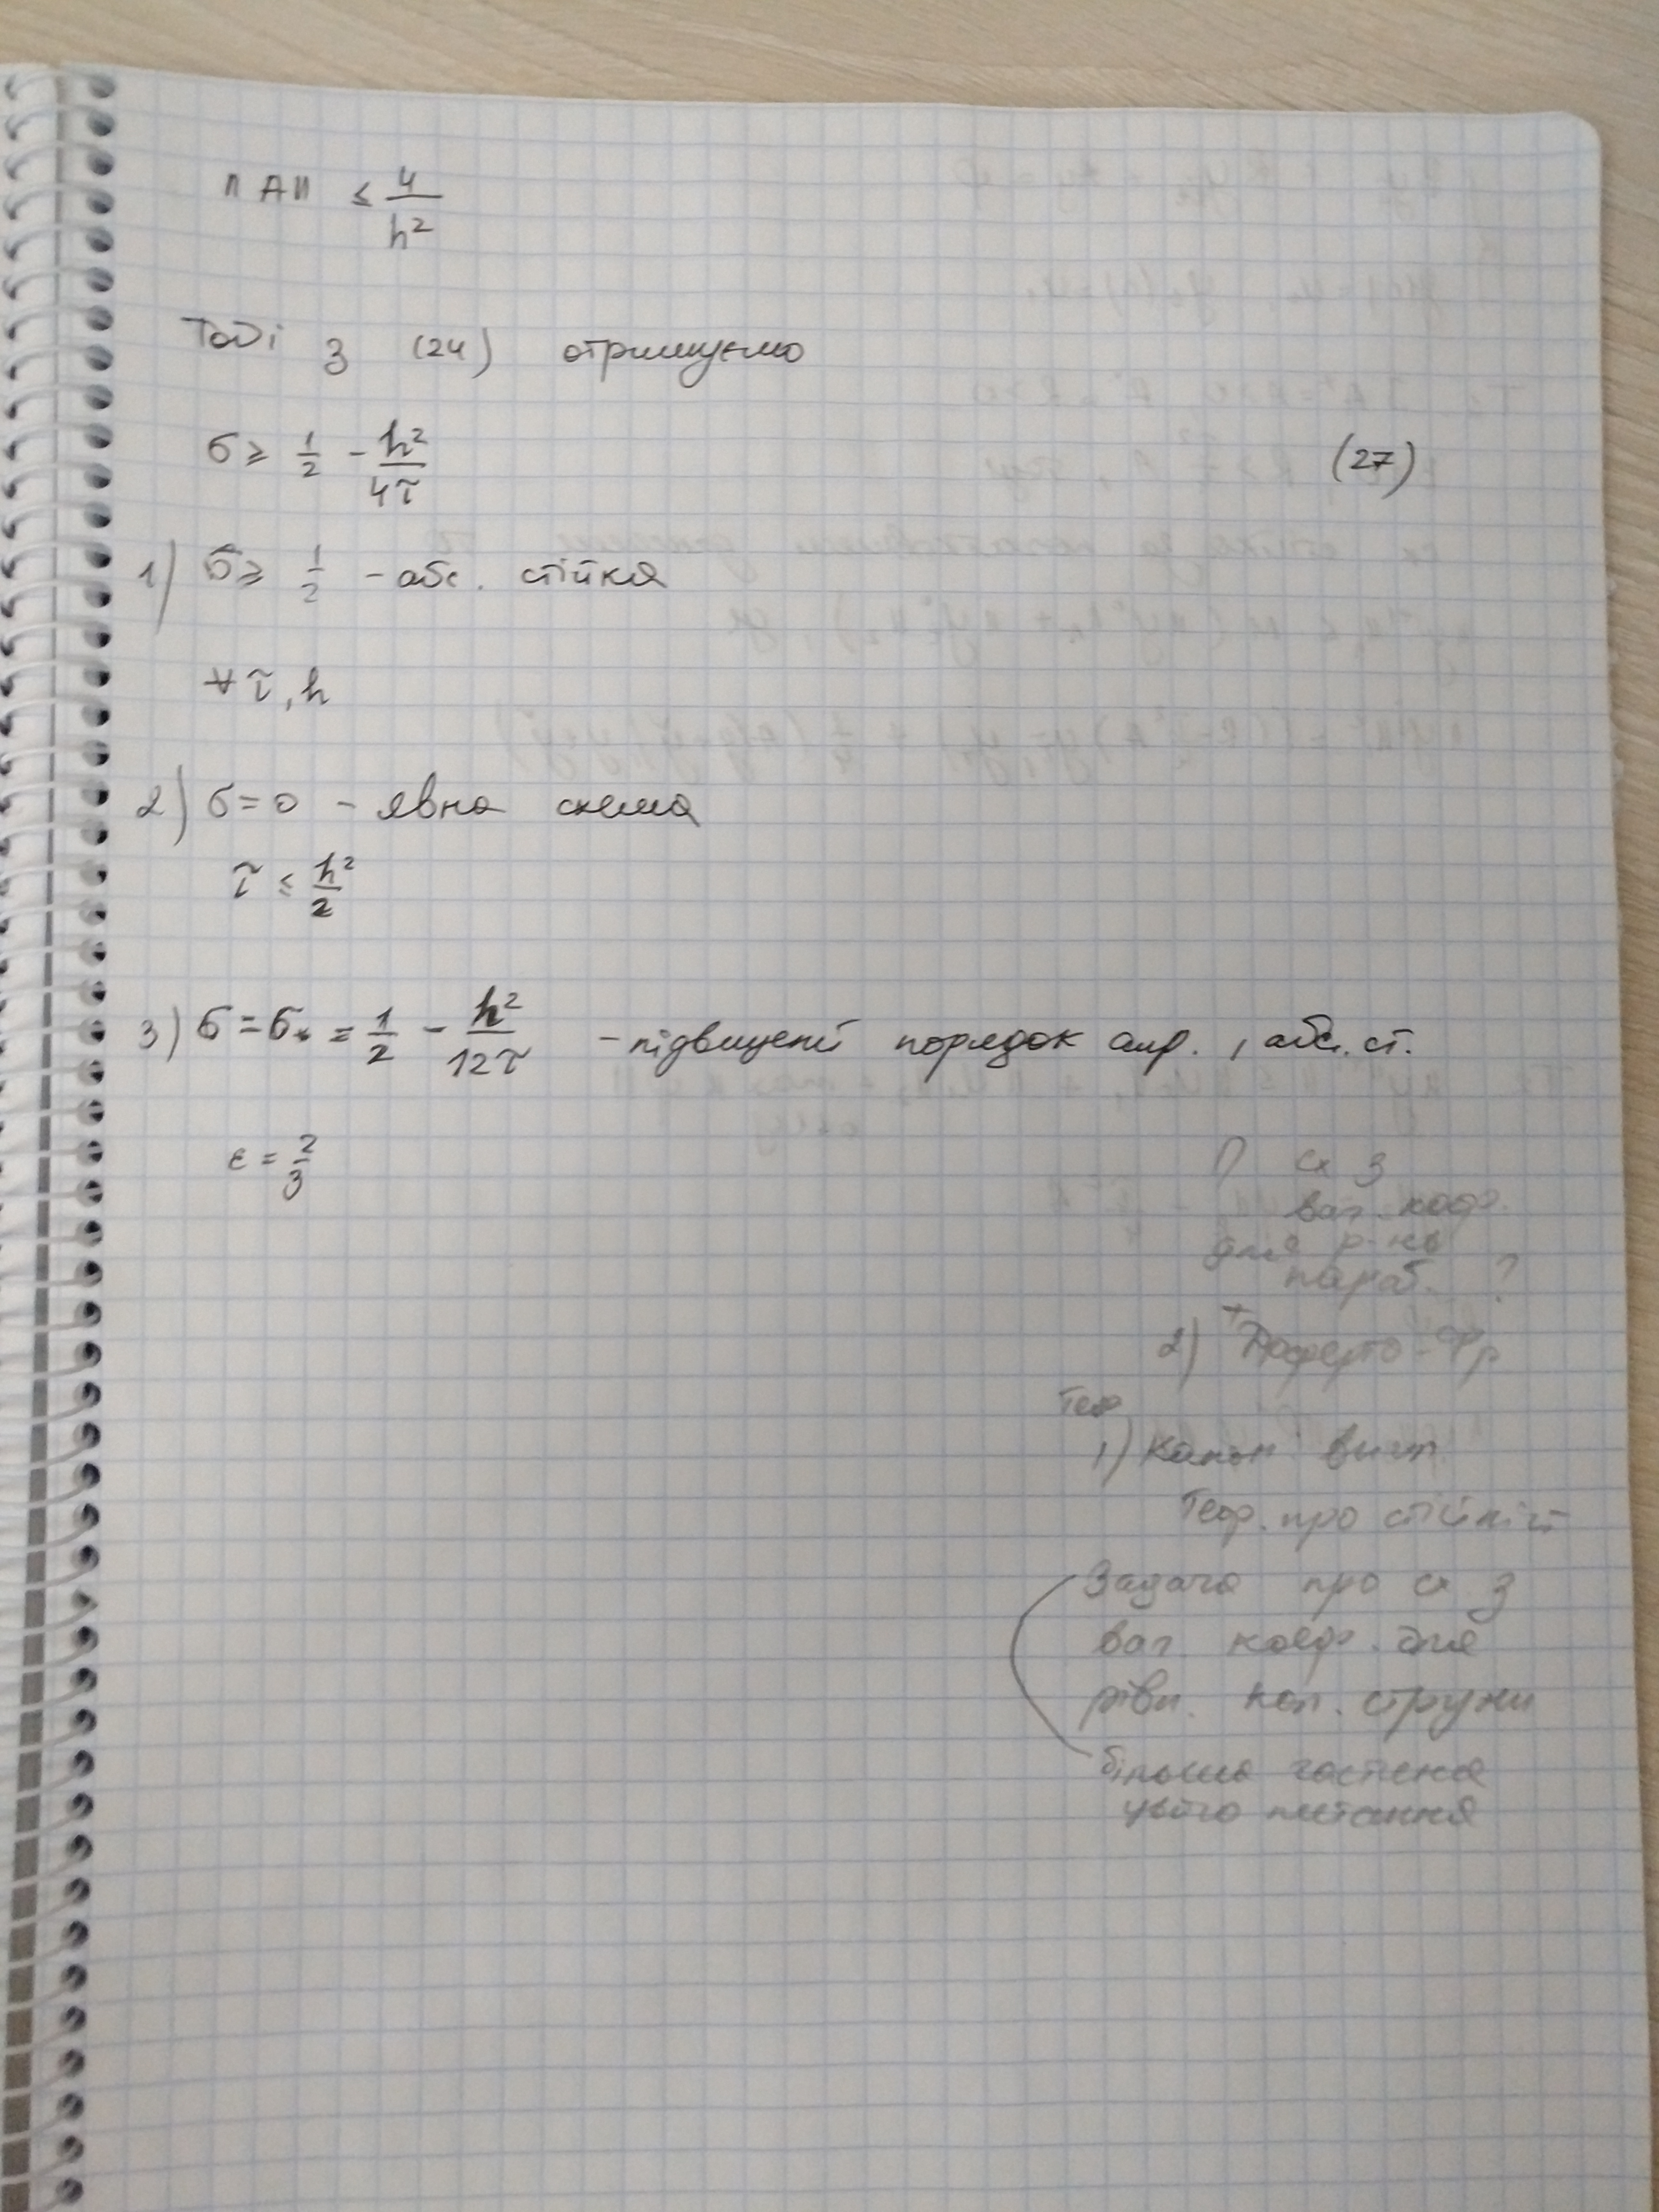 ||A|| ≤ 4/h²
Тоді з (24) отримуємо
σ ≥ 1/2 - h²/4τ (27)
1) σ ≥ 1/2 - абс. стійка
∀ τ, h
2) σ = 0 - явна схема
τ ≤ h²/2
3) σ = σ* = 1/2 - h²/12τ - підвищений порядок апр., абс. ст.
ε = 2/3
П сх з
ваг. коеф.
для р-нь
параб. ?
2) + -Фр
Теор
1) Канон. вигл.
Теор. про стійкіст
Задача про сх з
ваг. коеф. для
рівн. кол. струни
більша частина
цього питання